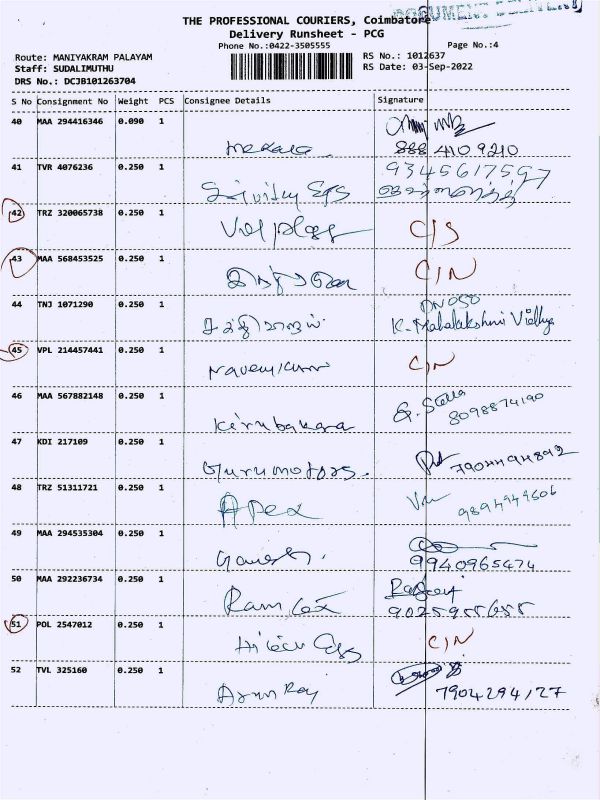 DOCUMENT
THE PROFESSIONAL COURIERS, Coimbatore
Delivery Runsheet - PCG
Phone No.:0422-3505555
Page No.:4
Route: MANIYAKRAM PALAYAM
RS No.: 1012637
Staff: SUDALIMUTHU
RS Date: 03-Sep-2022
DRS No.: DCJB101263704
S No Consignment No Weight PCS Consignee Details Signature
40 MAA 294416346 0.090 1
888 4109210
41 TVR 4076236 0.250 1
9345617597
42 TRZ 320065738 0.250 1 C/S
43 MAA 568453525 0.250 1 C/N
44 TNJ 1071290 0.250 1 DN050
K. Mahalakshmi Vidhya
45 VPL 214457441 0.250 1 C/N
46 MAA 567882148 0.250 1 Kirubakara G. Stella
8098874190
47 KDI 217109 0.250 1 Gurumotors.
48 TRZ 51311721 0.250 1 Apex
9894949606
49 MAA 294535304 0.250 1 Ganesh.
9940965474
50 MAA 292236734 0.250 1
51 POL 2547012 0.250 1 C/N
52 TVL 325160 0.250 1 Arun Raj
7904294127